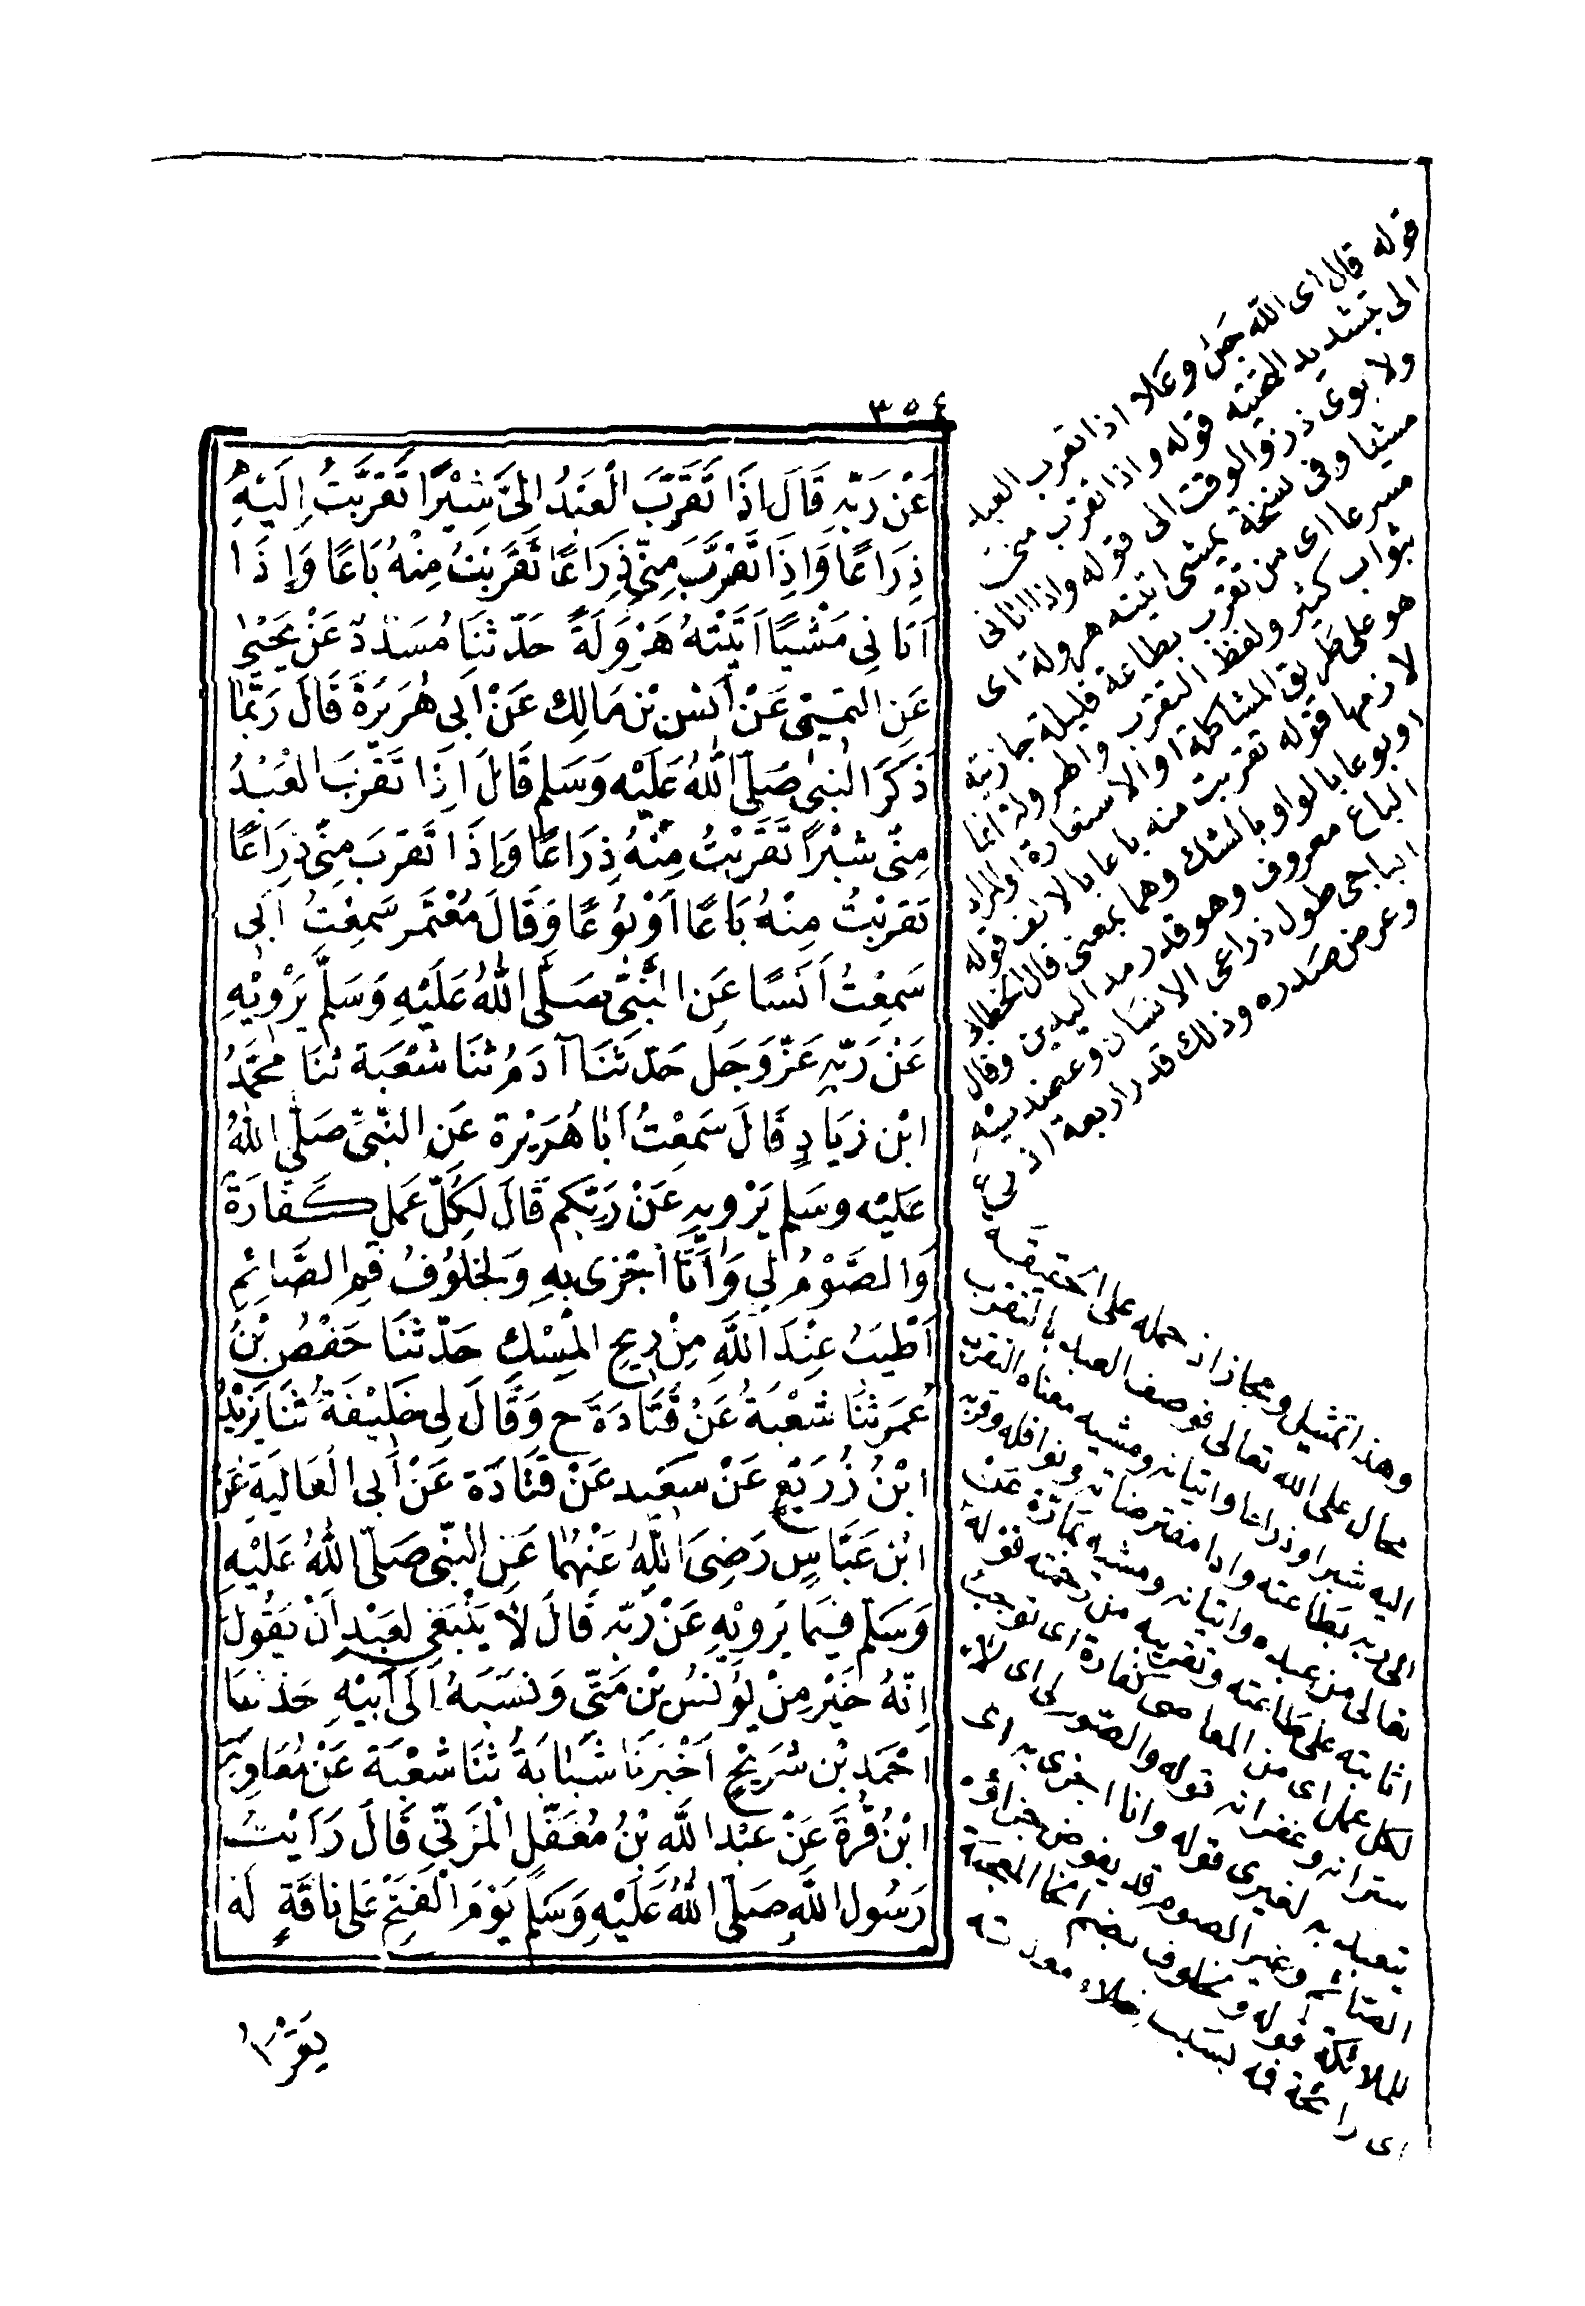 ٣٥٤
عَنْ رَبِّهِ قَالَ اِذَا تَقَرَّبَ الْعَبْدُ اِلَىَّ شِبْرًا تَقَرَّبْتُ اِلَيْهِ
ذِرَاعًا وَاِذَا تَقَرَّبَ مِنِّي ذِرَاعًا تَقَرَّبْتُ مِنْهُ بَاعًا وَاِذَا
اَتَانِي مَشْيًا اَتَيْتُهُ هَرْوَلَةً حَدَّثَنَا مُسَدَّدٌ عَنْ يَحْيٰى
عَنِ التَّيْمِيِّ عَنْ اَنَسِ بْنِ مَالِكٍ عَنْ اَبِي هُرَيْرَةَ قَالَ رُبَّمَا
ذَكَرَ النَّبِيَّ صَلَّى اللّٰهُ عَلَيْهِ وَسَلَّمَ قَالَ اِذَا تَقَرَّبَ الْعَبْدُ
مِنِّي شِبْرًا تَقَرَّبْتُ مِنْهُ ذِرَاعًا وَاِذَا تَقَرَّبَ مِنِّي ذِرَاعًا
تَقَرَّبْتُ مِنْهُ بَاعًا اَوْ بُوْعًا وَقَالَ مُعْتَمِرٌ سَمِعْتُ اَبِي
سَمِعْتُ اَنَسًا عَنِ النَّبِيِّ صَلَّى اللّٰهُ عَلَيْهِ وَسَلَّمَ يَرْوِيْهِ
عَنْ رَبِّهِ عَزَّ وَجَلَّ حَدَّثَنَا آدَمُ ثَنَا شُعْبَةُ ثَنَا مُحَمَّدُ
ابْنُ زِيَادٍ قَالَ سَمِعْتُ اَبَا هُرَيْرَةَ عَنِ النَّبِيِّ صَلَّى اللّٰهُ
عَلَيْهِ وَسَلَّمَ يَرْوِيهِ عَنْ رَبِّكُمْ قَالَ لِكُلِّ عَمَلٍ كَفَّارَةٌ
وَالصَّوْمُ لِي وَاَنَا اَجْزِي بِهِ وَلَخُلُوْفُ فَمِ الصَّائِمِ
اَطْيَبُ عِنْدَ اللّٰهِ مِنْ رِيحِ الْمِسْكِ حَدَّثَنَا حَفْصُ بْنُ
عُمَرَ ثَنَا شُعْبَةُ عَنْ قَتَادَةَ ح وَقَالَ لِي خَلِيْفَةُ ثَنَا يَزِيْدُ
ابْنُ زُرَيْعٍ عَنْ سَعِيدٍ عَنْ قَتَادَةَ عَنْ اَبِي الْعَالِيَةِ عَنِ
ابْنِ عَبَّاسٍ رَضِيَ اللّٰهُ عَنْهُمَا عَنِ النَّبِيِّ صَلَّى اللّٰهُ عَلَيْهِ
وَسَلَّمَ فِيمَا يَرْوِيْهِ عَنْ رَبِّهِ قَالَ لَا يَنْبَغِي لِعَبْدٍ اَنْ يَقُولَ
اِنَّهُ خَيْرٌ مِنْ يُوْنُسَ بْنِ مَتّٰى وَنَسَبَهُ اِلَى اَبِيْهِ حَدَّثَنَا
اَحْمَدُ بْنُ سُرَيْجٍ اَخْبَرَنَا شَبَابَةُ ثَنَا شُعْبَةُ عَنْ مُعَاوِيَةَ
ابْنِ قُرَّةَ عَنْ عَبْدِ اللّٰهِ بْنِ مُغَفَّلٍ الْمُزَنِيِّ قَالَ رَاَيْتُ
رَسُولَ اللّٰهِ صَلَّى اللّٰهُ عَلَيْهِ وَسَلَّمَ يَوْمَ الْفَتْحِ عَلَى نَاقَةٍ لَهُ
يَقْرَاُ
قوله قال اى الله جل وعلا اذا تقرب العبد
الى بتشديد التحتيه قوله واذا تقرب منى
ولا بوى ذر والوقت الى قوله واذا اتانى
مشيا وفى نسخة يمشى اتيته هرولة اى
مسرعا اى من تقرب بطاعة قليلة جازيته
بثواب كثير ولفظ التقرب والهرولة انما
هو على طريق المشاكلة او الاستعارة او المراد
لازمها قوله تقربت منه باعا بالالف قوله
او بوعا بالواو بالشك وهما بمعنى قال الخطابى
الباع معروف وهو قدر مد اليدين وقال
الباجى طول ذراعى الانسان وعضديه
وعرض صدره وذلك قدر اربعة اذرع
وهذا تمثيل ومجاز اذ حمله على الحقيقة
محال على الله تعالى فوصف العبد بالتقرب
اليه شبرا وذراعا واتيانه ومشيه معناه التقرب
الى ربه بطاعته واداء مفترضاته ونوافله وقربه
تعالى من عبده واتيانه ومشيه عبارة عن
اثابته على طاعته وتقربه من رحمته قوله
لكل عمل اى من المعاصى كفارة اى توجب
سترانه وغفرانه قوله والصوم لى اى لا
يتعبد به لغيرى قوله وانا اجزى به اى
الصائم وغير الصوم قد يفوض جزاؤه
للملائكة قوله ولخلوف بضم الخا المعجمة
اى رائحة فمه بسبب خلاء معدته